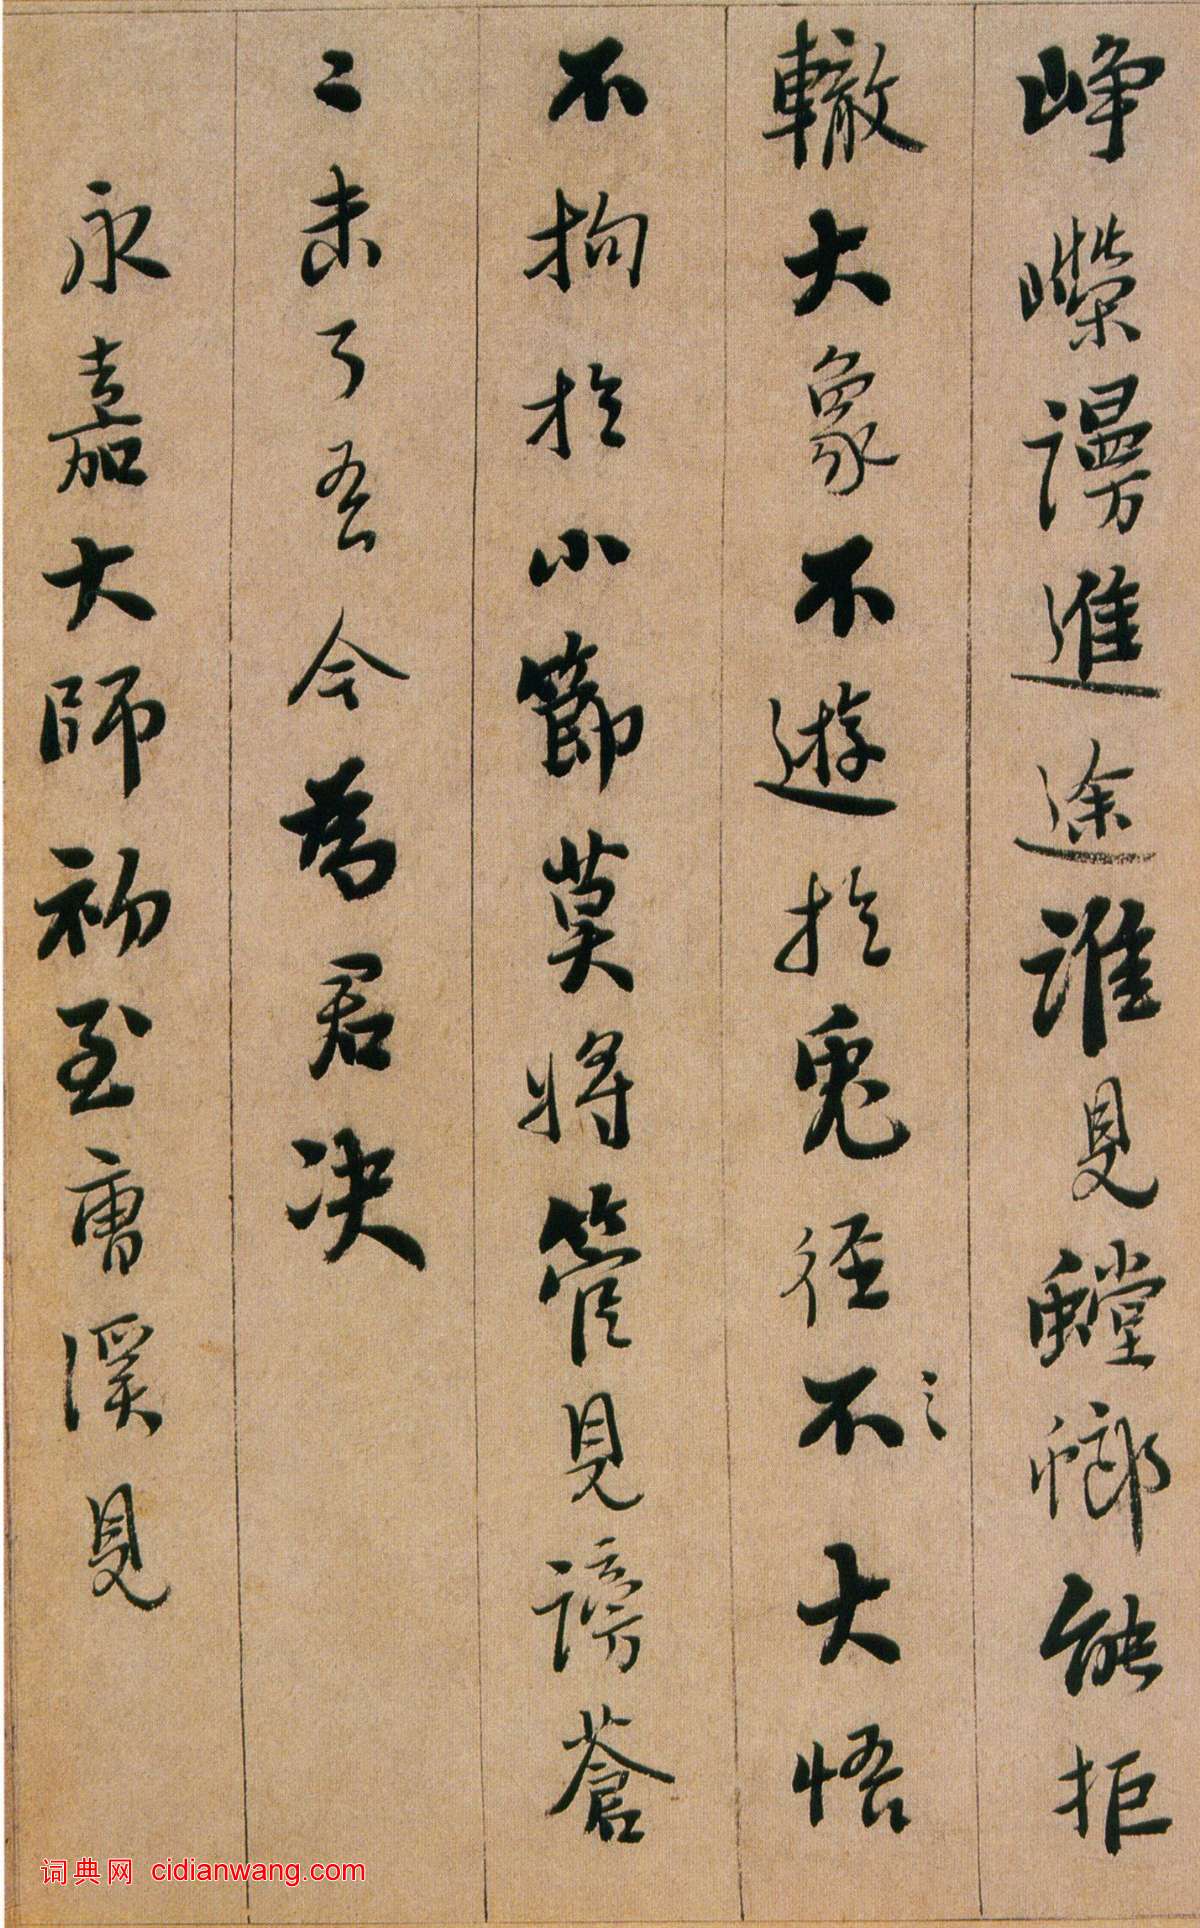 峥嵘謾進途誰見螳螂能拒
轍大象不遊於兎径不大悟
不拘於小節莫将管見謗蒼
〻未了吾今為君决
永嘉大師初至曹溪見
词典网 cidianwang.com